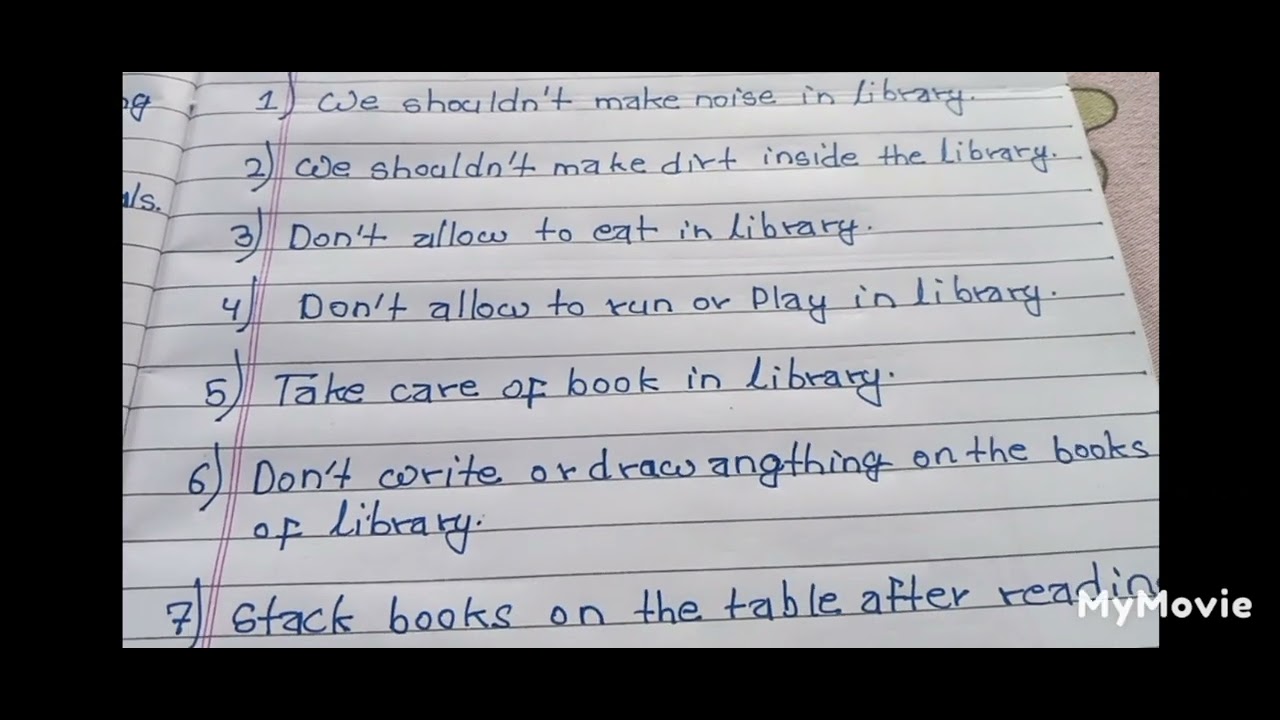 og
1) We shouldn't make noise in library.
2) We shouldn't make dirt inside the library.
ls.
3) Don't allow to eat in library.
4) Don't allow to run or Play in library.
5) Take care of book in library.
6) Don't write or draw angthing on the books
of library.
7) Stack books on the table after readin
MyMovie